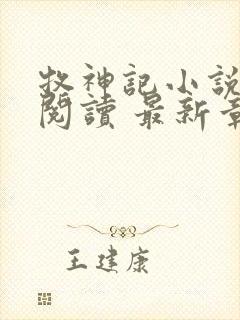 牧神記小說
閱讀 最新章
王建康